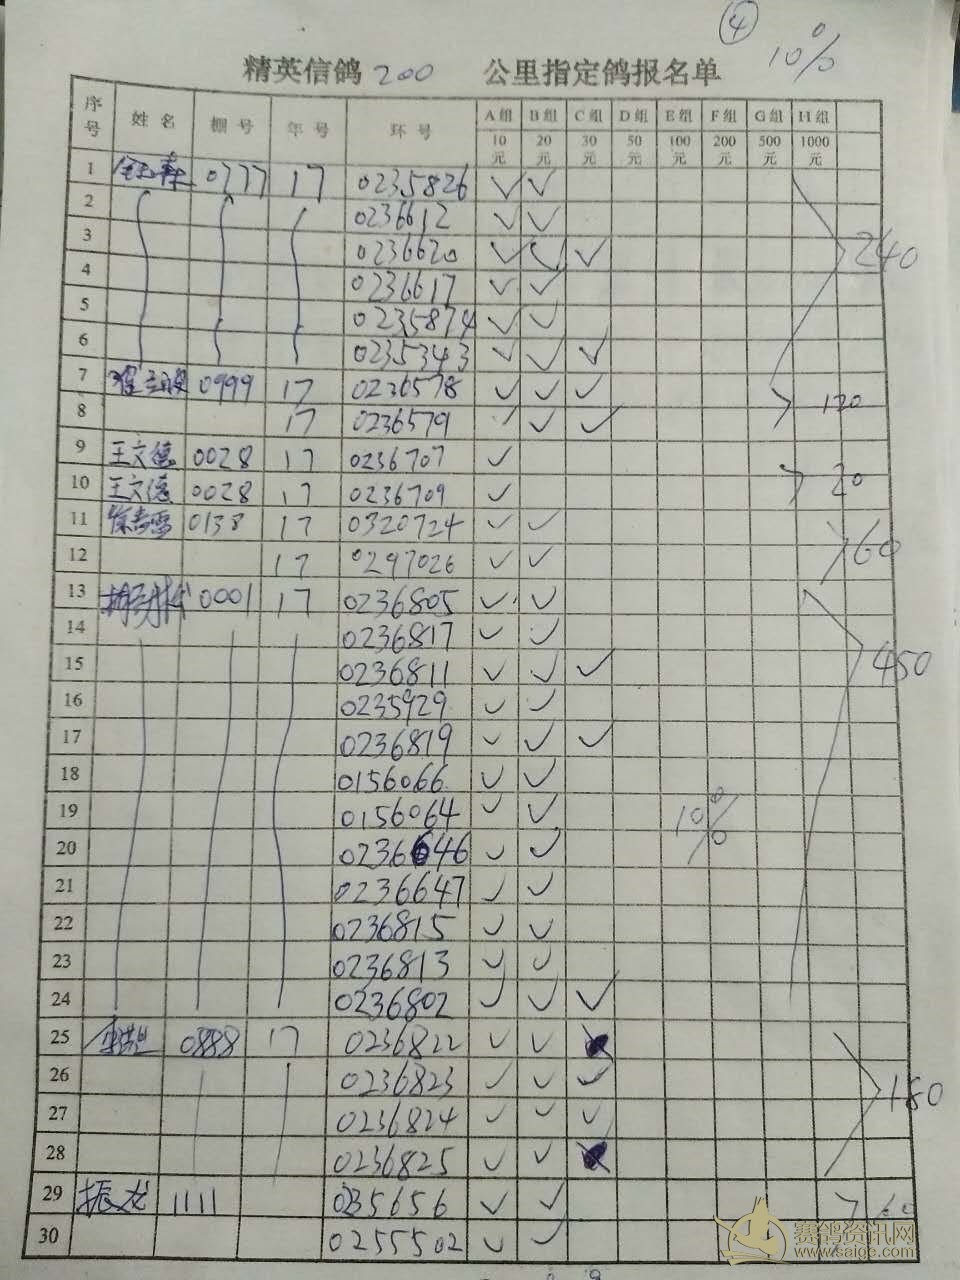 ④ 10%
精英信鸽 200 公里指定鸽报名单
序号 姓名 棚号 年号 环号 A组 B组 C组 D组 E组 F组 G组 H组
10元 20元 30元 50元 100元 200元 500元 1000元
1 0777 17 0235826 ✓ ✓
2 0236612 ✓ ✓
3 0236620 ✓ ✓ ✓ 240
4 0236617 ✓ ✓
5 0235874 ✓ ✓
6 0235343 ✓ ✓ ✓
7 0999 17 0236578 ✓ ✓ ✓ 120
8 17 0236579 ✓ ✓ ✓
9 王文德 0028 17 0236707 ✓
10 王文德 0028 17 0236709 ✓ 20
11 0138 17 0320724 ✓ ✓
12 17 0297026 ✓ ✓ 60
13 0001 17 0236805 ✓ ✓
14 0236817 ✓ ✓
15 0236811 ✓ ✓ ✓ 450
16 0235929 ✓ ✓
17 0236819 ✓ ✓ ✓
18 0156066 ✓ ✓
19 0156064 ✓ ✓ 10%
20 0236646 ✓ ✓
21 0236647 ✓ ✓
22 0236815 ✓ ✓
23 0236813 ✓ ✓
24 0236802 ✓ ✓ ✓
25 0888 17 0236822 ✓ ✓
26 0236823 ✓ ✓ ✓ 180
27 0236824 ✓ ✓ ✓
28 0236825 ✓ ✓
29 振龙 1111 035656 ✓ ✓ 60
30 0255502 ✓ ✓
赛鸽资讯网
www.saige.com